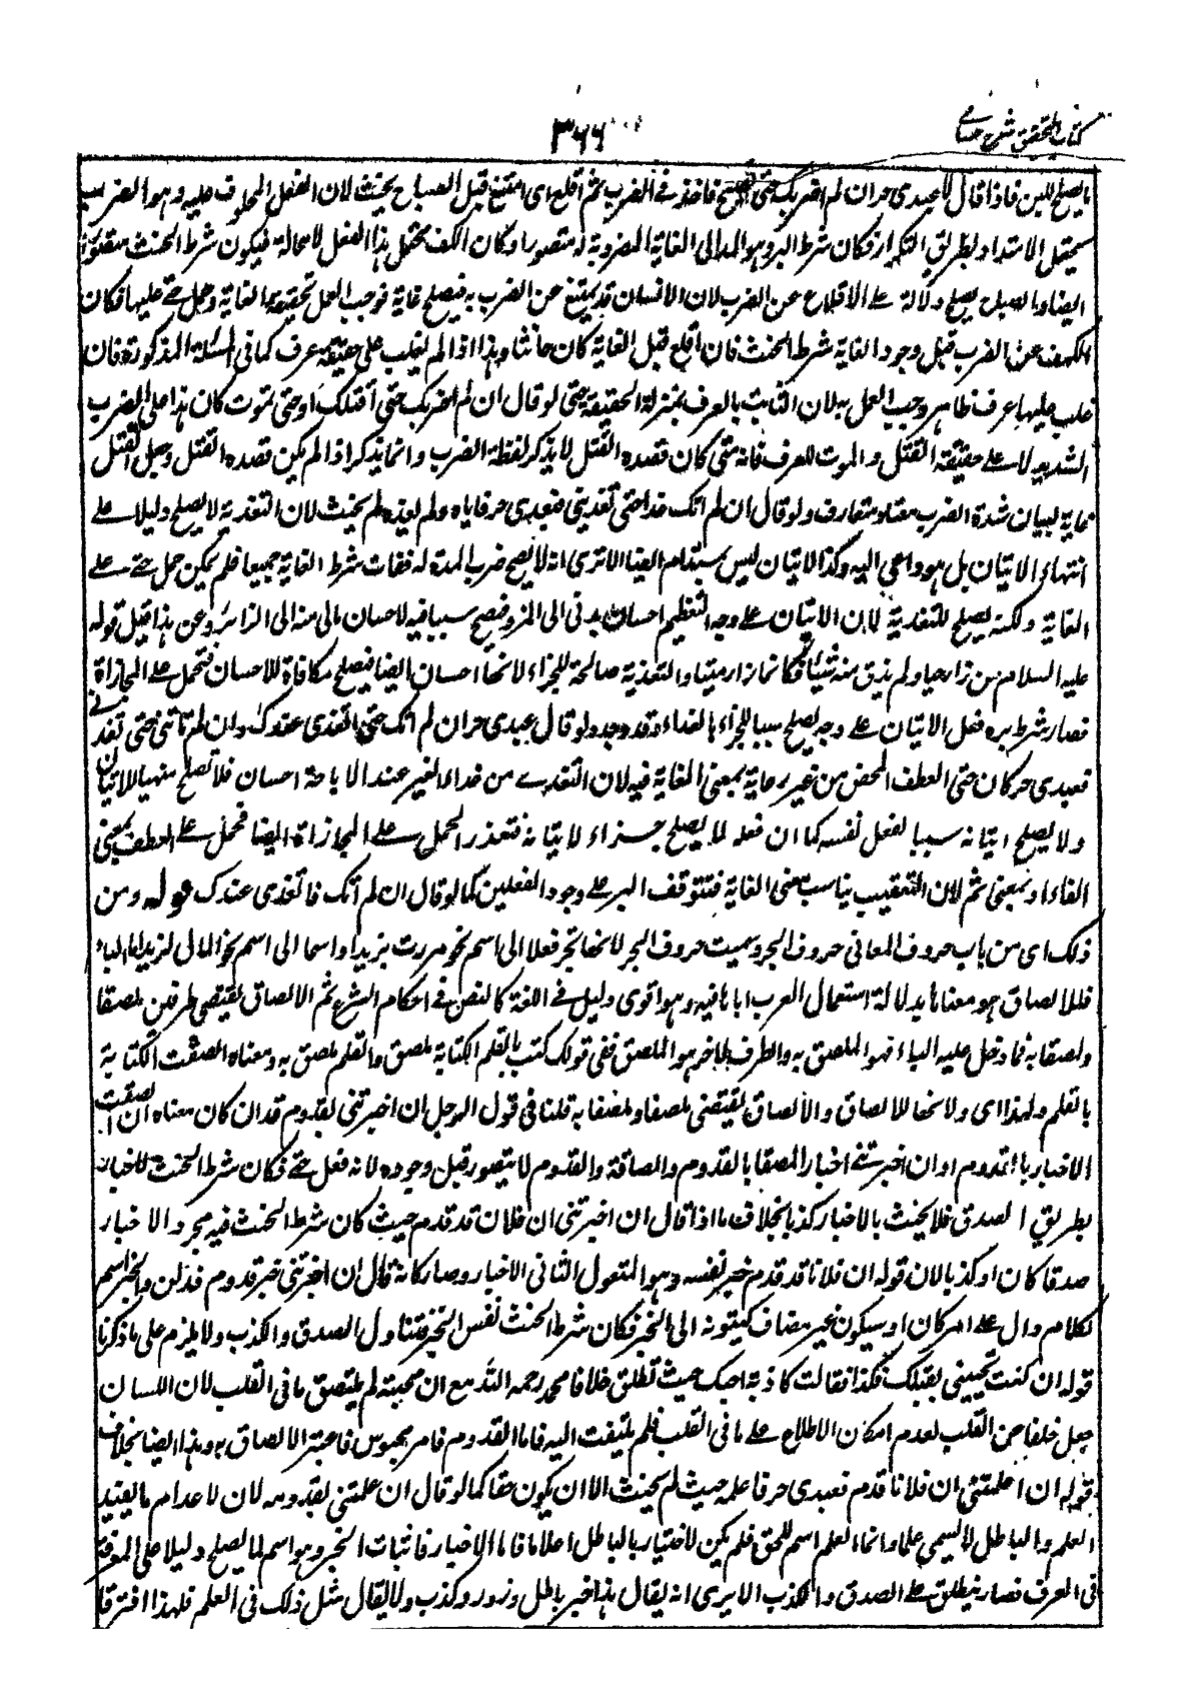 كتاب التحقيق شرح حسامي
٣٦٦
ما يصلح للبين فاذا قال لا عبدى حر ان لم اضربك حتى تصيح فاخذ فى الضرب ثم اقلع اى امتنع قبل الصباح يحنث لان الفعل المحلوف عليه وهو الضرب
يحتمل الامتداد بطريق التكرار فكان شرط البر وهو المد الى الغاية المضروبة له متصورا وكان الكف يحتمل هذا الفعل لا محالة فيكون شرط الحنث متصورا
ايضا والصباح يصلح دلالة على الاقلاع عن الضرب لان الانسان قد يمتنع عن الضرب به فيصلح غاية فوجب العمل بحقيقة الغاية وحمل حتى عليها فكان
الكف عن الضرب قبل وجود الغاية شرط الحنث فان اقلع قبل الغاية كان حانثا وهذا اذا لم يغلب على حقيقته عرف كما فى المسئلة المذكورة فان
غلب عليها عرف ظاهر وجب العمل به لان الثابت بالعرف بمنزلة الحقيقة حتى لو قال ان لم اضربك حتى اقتلك او حتى تموت كان هذا على الضرب
الشديد لا على حقيقة القتل والموت للعرف فانه متى كان قصده القتل لا يذكر لفظة الضرب وانما يذكر اذا لم يكن قصده القتل وجعل القتل
غاية لبيان شدة الضرب معتاد متعارف ولو قال ان لم اتك غدا حتى تغدينى فعبدى حر فاتاه ولم يغده لم يحنث لان التغدية لا يصلح دليلا على
انتهاء الاتيان بل هو داعى اليه وكذا الاتيان ليس بمستدام ايضا الا ترى انه لا يصح ضرب المدة له ففات شرط الغاية جميعا فلم يمكن حمل حتى على
الغاية ولكنه يصلح للتغدية لان الاتيان على وجه التعظيم احسان بدنى الى المزور فصح سببا فيه لاحسان مالى منه الى الزائر وعن هذا قيل قوله
عليه السلام من زار حيا ولم يذق منه شيئا فكانما زار ميتا والتغدية صالحة للجزاء لانها احسان ايضا فيصلح مكافاة للاحسان فتحمل على المجازاة
فصار شرط بره فعل الاتيان على وجه يصلح سببا للجزاء بالغداء وقد وجد ولو قال عبدى حر ان لم اتك حتى اتغدى عندك او ان لم تاتنى حتى تغدى
فعبدى حر كان حتى العطف المحض من غير رعاية بمعنى الغاية فيه لان التغدى من غداء الغير عند الاباحة احسان فلا تصلح منهيا للاتيان
ولا يصلح اتيانه سببا لفعل نفسه كما ان فعله لا يصلح جزاء لاتيانه فتعذر الحمل على المجازاة ايضا فحمل على العطف بمعنى
الفاء او بمعنى ثم لان التعقيب يناسب معنى الغاية فتتوقف البر على وجود الفعلين كما لو قال ان لم اتك فاتغدى عندك قوله ومن
ذلك اى من باب حروف المعانى حروف الجر وسميت حروف الجر لانها تجر فعلا الى اسم نحو مررت بزيد او اسما الى اسم نحو المال لزيد اما الباء
فللالصاق هو معناها بدلالة استعمال العرب اياها فيه وهو اقوى دليل فى اللغة كالنص فى احكام الشرع ثم الالصاق يقتضى طرفين ملصقا
وملصقا به فما دخل عليه الباء فهو الملصق به والطرف الاخر هو الملصق ففى قولك كتبت بالقلم الكتابة ملصق والقلم ملصق به ومعناه الصقت الكتابة
بالقلم ولهذا اى ولانها للالصاق والالصاق يقتضى ملصقا وملصقا به قلنا فى قول الرجل ان اخبرتنى بقدوم فلان كان معناه ان الصقت
الاخبار بالقدوم او ان اخبرتنى اخبارا ملصقا بالقدوم والصاقه والقدوم لا يتصور قبل وجوده لانه فعل حتى فكان شرط الحنث الاخبار
بطريق الصدق فلا يحنث بالاخبار كذبا بخلاف ما اذا قال ان اخبرتنى ان فلان قد قدم حيث كان شرط الحنث فيه مجرد الاخبار
صدقا كان او كذبا لان قوله ان فلانا قد قدم خبر بنفسه وهو المفعول الثانى الاخبار وصار كانه قال ان اخبرتنى خبر قدوم فلان والخبر اسم
لكلام دال على امر كان او سيكون غير مضاف كينونته الى الخبر فكان شرط الحنث نفس الخبر فتناول الصدق والكذب ولا يلزم على ما ذكرنا
قوله ان كنت تحبينى بقلبك فكذا فقالت كاذبة احبك حيث تطلق خلافا لمحمد رحمه الله مع ان محبته لم يلتصق ما فى القلب لان اللسان
جعل خلفا عن القلب لعدم امكان الاطلاع على ما فى القلب فلم يلتفت اليه فاما القدوم فامر محسوس فاعتبر الالصاق به وهذا ايضا بخلاف
قوله ان اعلمتنى ان فلانا قدم فعبدى حر فاعلمه حيث لم يحنث الا ان يكون حقا كما لو قال ان علمتنى بقدومه لان الاعلام ما يفيد
العلم والباطل لا يسمى علما وانما العلم اسم للحق فلم يكن الاخبار بالباطل اعلاما فاما الاخبار فاثبات الخبر وهو اسم لما يصلح دليلا على المعرفة
فى العرف فصار ينطلق على الصدق والكذب الا يرى انه يقال هذا خبر باطل وزور وكذب ولا يقال مثل ذلك فى العلم فلهذا افترقا